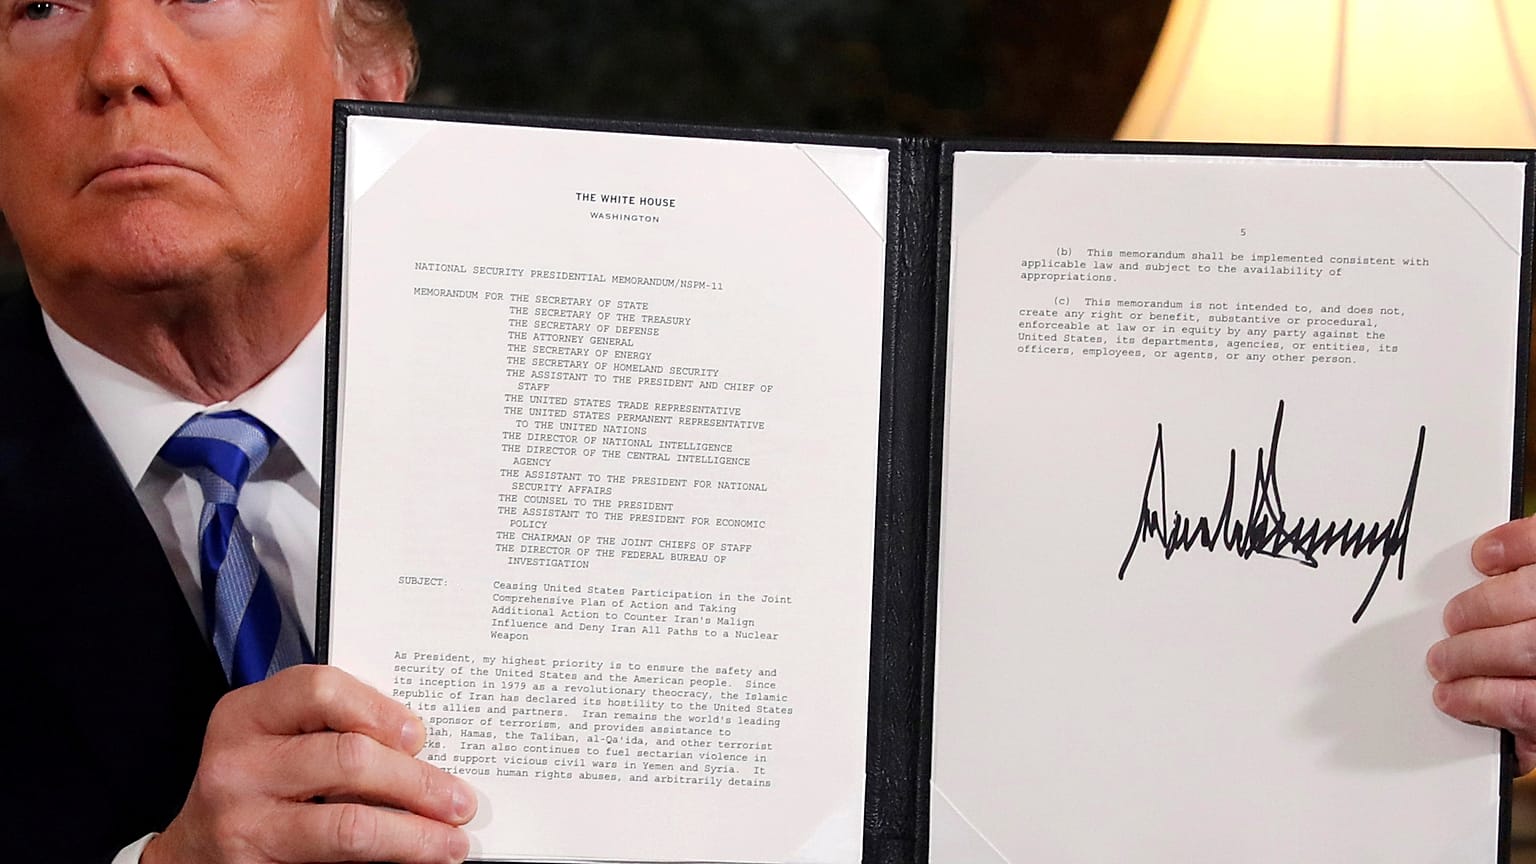 THE WHITE HOUSE
WASHINGTON
NATIONAL SECURITY PRESIDENTIAL MEMORANDUM/NSPM-11
MEMORANDUM FOR THE SECRETARY OF STATE
THE SECRETARY OF THE TREASURY
THE SECRETARY OF DEFENSE
THE ATTORNEY GENERAL
THE SECRETARY OF ENERGY
THE SECRETARY OF HOMELAND SECURITY
THE ASSISTANT TO THE PRESIDENT AND CHIEF OF
STAFF
THE UNITED STATES TRADE REPRESENTATIVE
THE UNITED STATES PERMANENT REPRESENTATIVE
TO THE UNITED NATIONS
THE DIRECTOR OF NATIONAL INTELLIGENCE
THE DIRECTOR OF THE CENTRAL INTELLIGENCE
AGENCY
THE ASSISTANT TO THE PRESIDENT FOR NATIONAL
SECURITY AFFAIRS
THE COUNSEL TO THE PRESIDENT
THE ASSISTANT TO THE PRESIDENT FOR ECONOMIC
POLICY
THE CHAIRMAN OF THE JOINT CHIEFS OF STAFF
THE DIRECTOR OF THE FEDERAL BUREAU OF
INVESTIGATION
SUBJECT: Ceasing United States Participation in the Joint
Comprehensive Plan of Action and Taking
Additional Action to Counter Iran's Malign
Influence and Deny Iran All Paths to a Nuclear
Weapon
As President, my highest priority is to ensure the safety and
security of the United States and the American people. Since
its inception in 1979 as a revolutionary theocracy, the Islamic
Republic of Iran has declared its hostility to the United States
its allies and partners. Iran remains the world's leading
sponsor of terrorism, and provides assistance to
llah, Hamas, the Taliban, al-Qa'ida, and other terrorist
rks. Iran also continues to fuel sectarian violence in
and support vicious civil wars in Yemen and Syria. It
grievous human rights abuses, and arbitrarily detains
5
(b) This memorandum shall be implemented consistent with
applicable law and subject to the availability of
appropriations.
(c) This memorandum is not intended to, and does not,
create any right or benefit, substantive or procedural,
enforceable at law or in equity by any party against the
United States, its departments, agencies, or entities, its
officers, employees, or agents, or any other person.